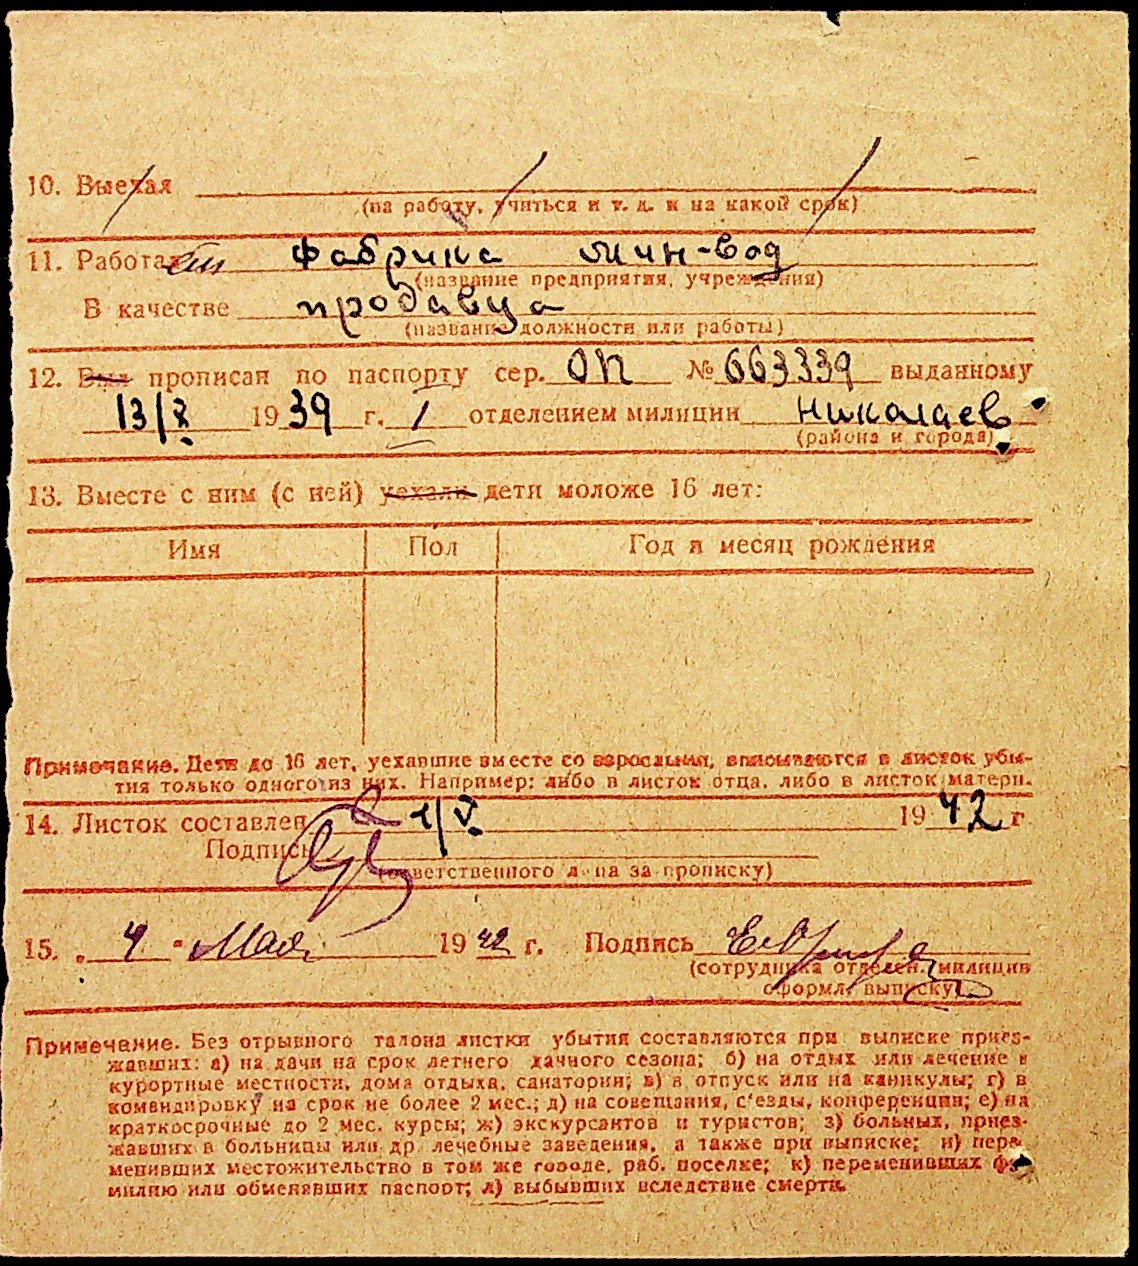 10. Выехал
(на работу, учиться и т. д. и на какой срок)
11. Работал фабрика мин-вод
(название предприятия, учреждения)
В качестве продавца
(название должности или работы)
12. Был прописан по паспорту сер. ОП № 663339 выданному
13/X 1939 г. 1 отделением милиции Николаев
(района и города)
13. Вместе с ним (с ней) уехали дети моложе 16 лет:
Имя Пол Год и месяц рождения
Примечание. Дети до 16 лет, уехавшие вместе со взрослыми, вписываются в листок убы-
тия только одного из них. Например: либо в листок отца, либо в листок матери.
14. Листок составлен 1/V 1942 г
Подпись
(ответственного лица за прописку)
15. „ 4 " Мая 1942 г. Подпись
(сотрудника отделен. милиции
оформл. выписку)
Примечание. Без отрывного талона листки убытия составляются при выписке приез-
жавших: а) на дачи на срок летнего дачного сезона; б) на отдых или лечение в
курортные местности, дома отдыха, санатории; в) в отпуск или на каникулы; г) в
командировку на срок не более 2 мес.; д) на совещания, с'езды, конференции; е) на
краткосрочные до 2 мес. курсы; ж) экскурсантов и туристов; з) больных, приез-
жавших в больницы или др. лечебные заведения, а также при выписке; и) пере-
менивших местожительство в том же городе, раб. поселке; к) переменивших фа-
милию или обменявших паспорт; л) выбывших вследствие смерти.